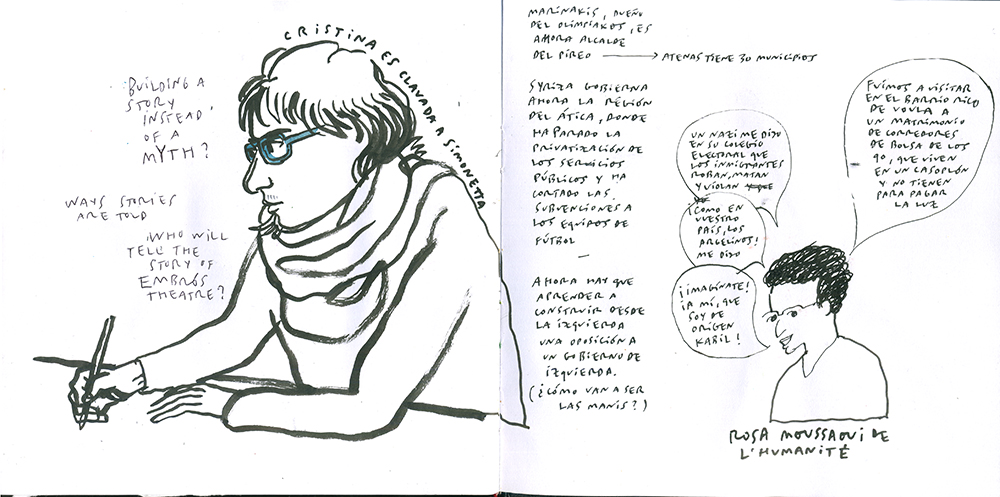 CRISTINA ES CLAVADA A SIMONETTA
'BUILDING A
STORY
INSTEAD
OF A
MYTH?
WAYS STORIES
ARE TOLD
WHO WILL
TELL THE
STORY OF
EMBROS
THEATRE?'
MARINAKIS, DUEÑO
DEL OLIMPIAKOS, ES
AHORA ALCALDE
DEL PIREO → ATENAS TIENE 30 MUNICIPIOS
SYRIZA GOBIERNA
AHORA LA REGIÓN
DEL ÁTICA, DONDE
HA PARADO LA
PRIVATIZACIÓN DE
LOS SERVICIOS
PÚBLICOS Y HA
CORTADO LAS
SUBVENCIONES A
LOS EQUIPOS DE
FÚTBOL
—
AHORA HAY QUE
APRENDER A
CONSTRUIR DESDE
LA IZQUIERDA
UNA OPOSICIÓN A
UN GOBIERNO DE
IZQUIERDA.
(¿CÓMO VAN A SER
LAS MANIS?)
UN NAZI ME DIJO
EN SU COLEGIO
ELECTORAL QUE
LOS INMIGRANTES
ROBAN, MATAN
Y VIOLAN
¡COMO EN
VUESTRO
PAÍS, LOS
ARGELINOS!
ME DIJO
¡IMAGÍNATE!
¡A MÍ, QUE
SOY DE
ORIGEN
KABIL!
FUIMOS A VISITAR
EN EL BARRIO RICO
DE VOULA A
UN MATRIMONIO
DE CORREDORES
DE BOLSA DE LOS
90, QUE VIVEN
EN UN CASOPLÓN
Y NO TIENEN
PARA PAGAR
LA LUZ
ROSA MOUSSAOUI DE
L'HUMANITÉ